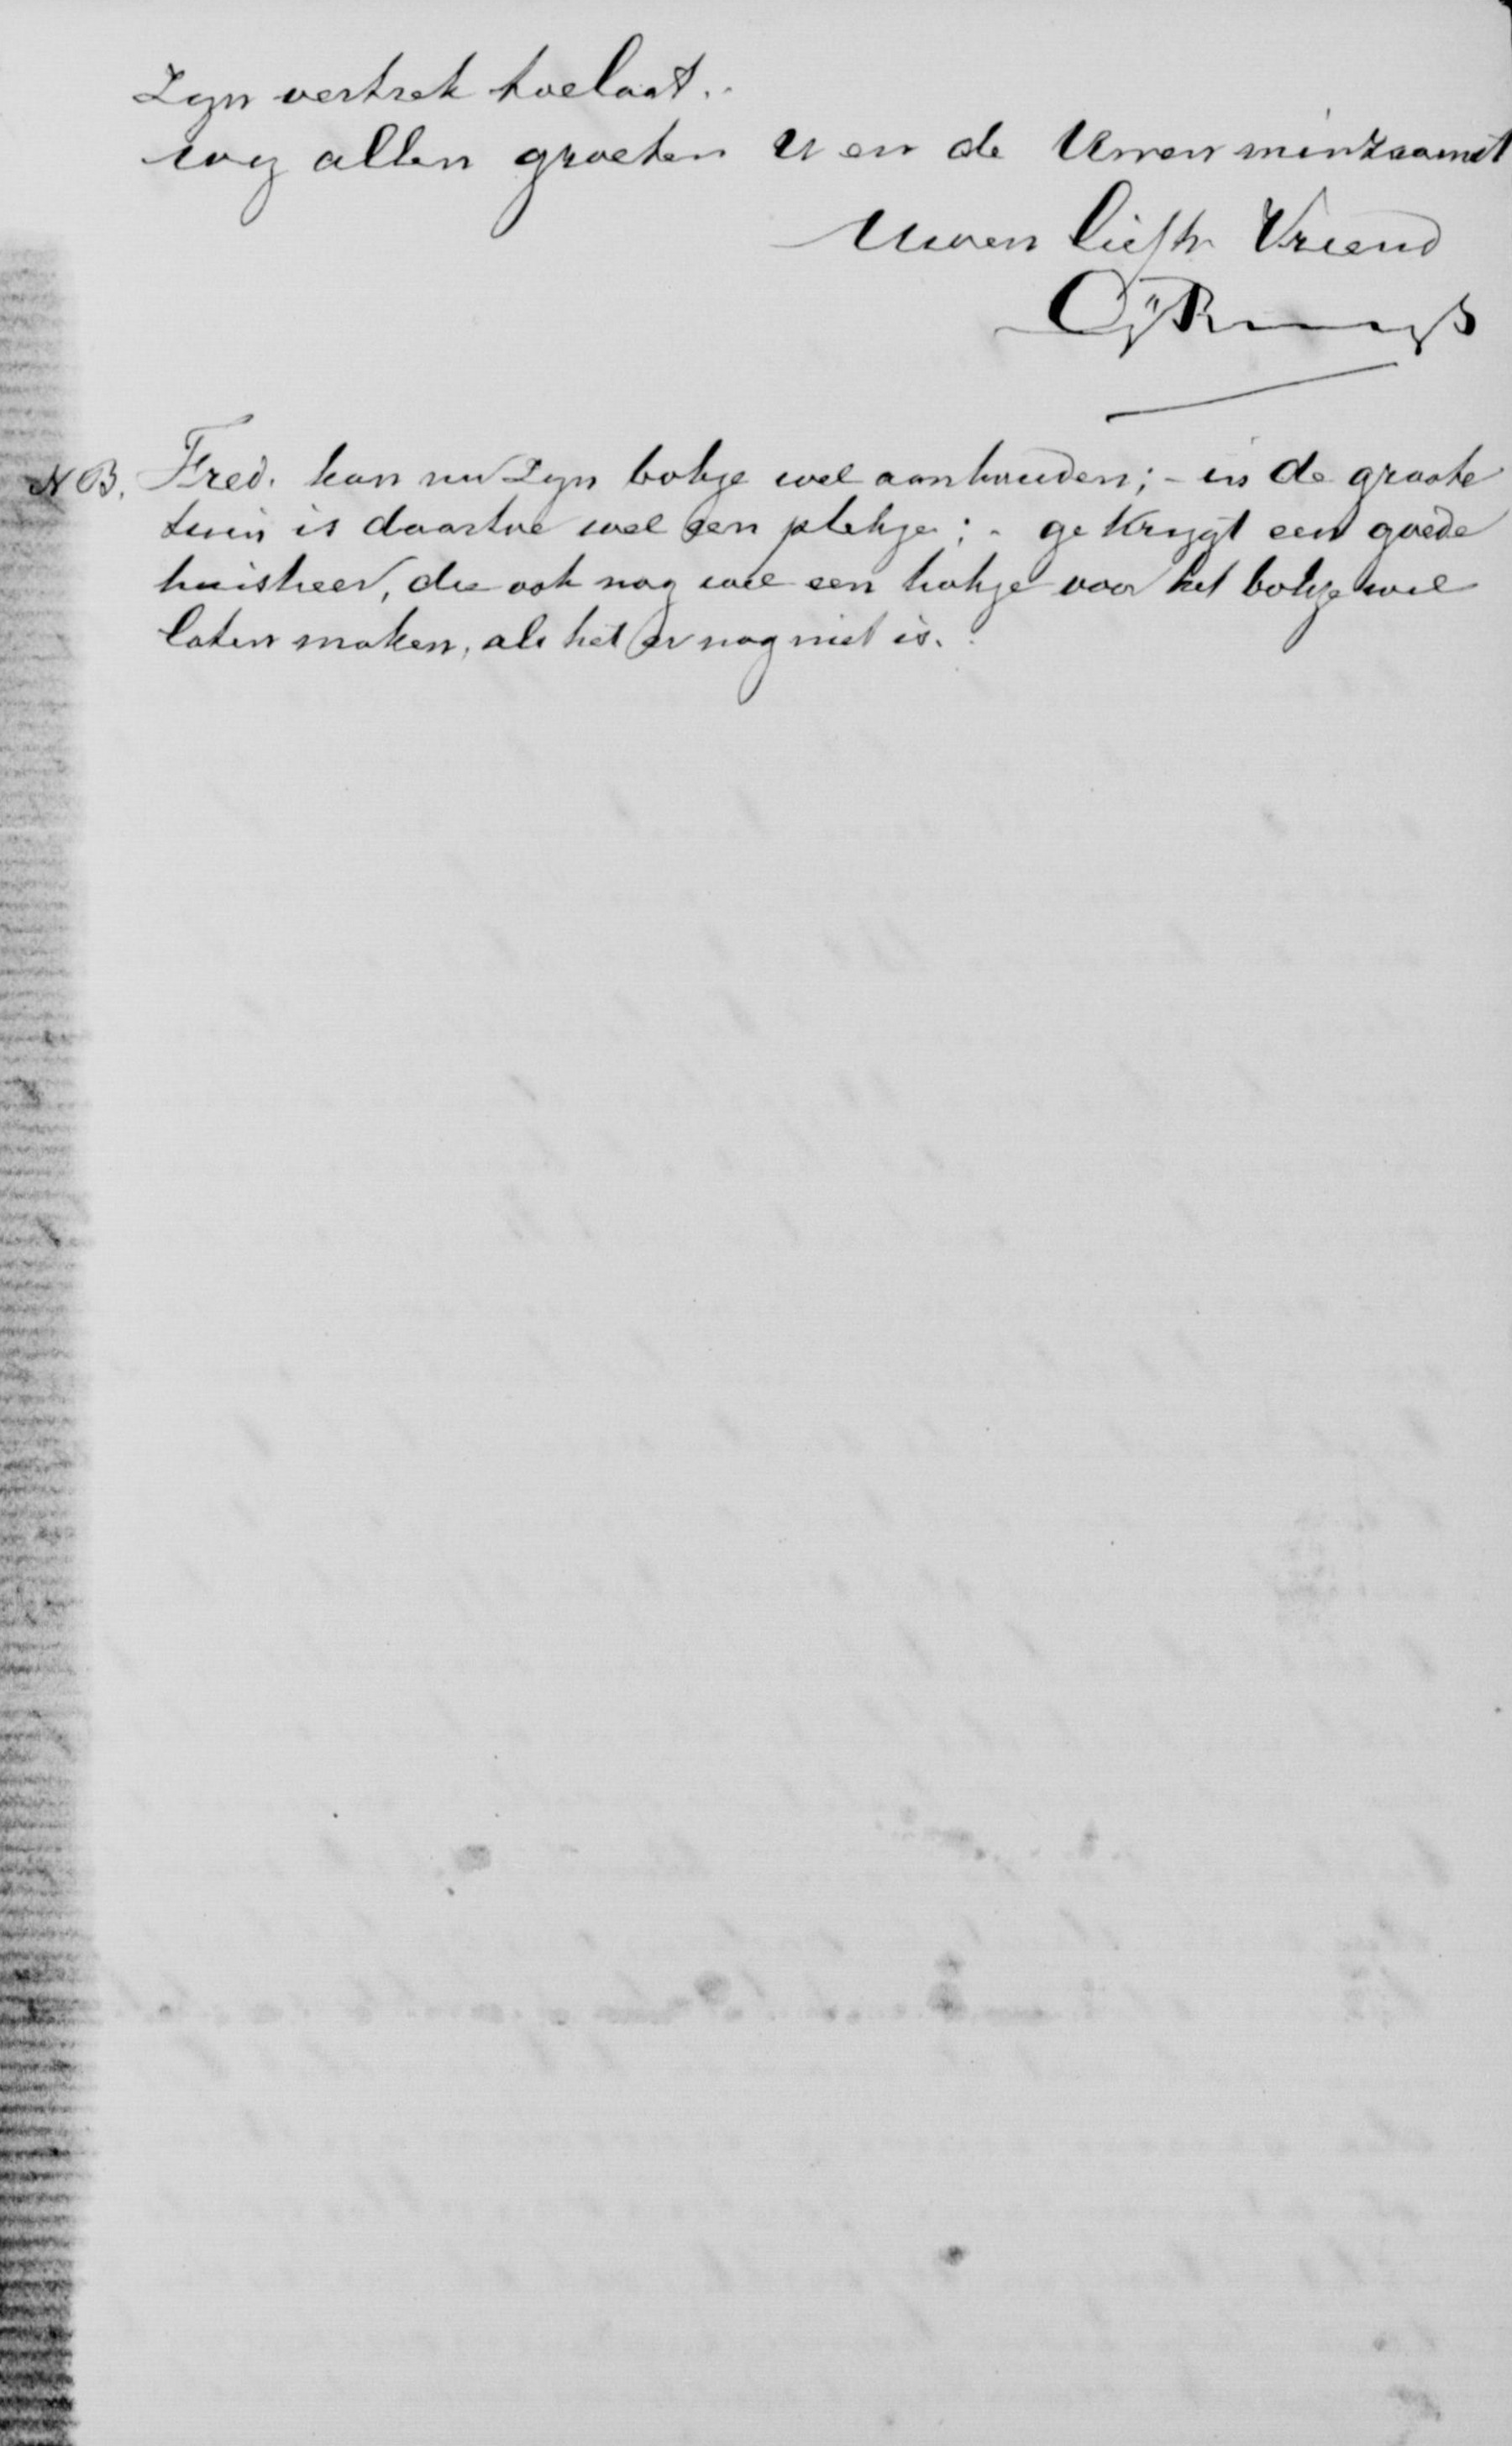 zyn vertrek toelaat.
wy allen groeten U en de Uwen minzaamst
Uwen liefh. Vriend
N B. Fred. kan nu zyn bokje wel aanhouden; - in de groote
tuin is daartoe wel een plekje; - ge krygt een goede
huisheer, die ook nog wel een hokje voor het bokje wil
laten maken, als het er nog niet is.